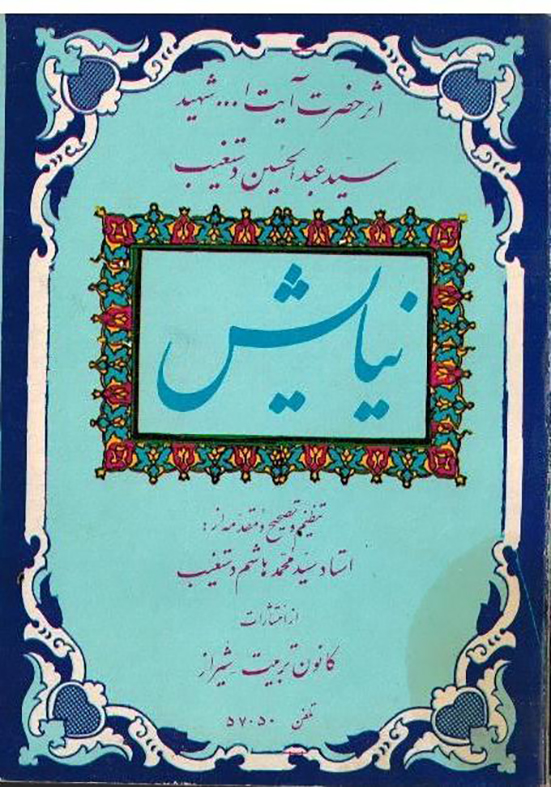 اثر حضرت آیت ا... شهید
سید عبدالحسین دستغیب
نیایش
تنظیم و تصحیح و مقدمه از:
استاد سید محمد هاشم دستغیب
از انتشارات
کانون تربیت شیراز
تلفن ۵۷۰۵۰